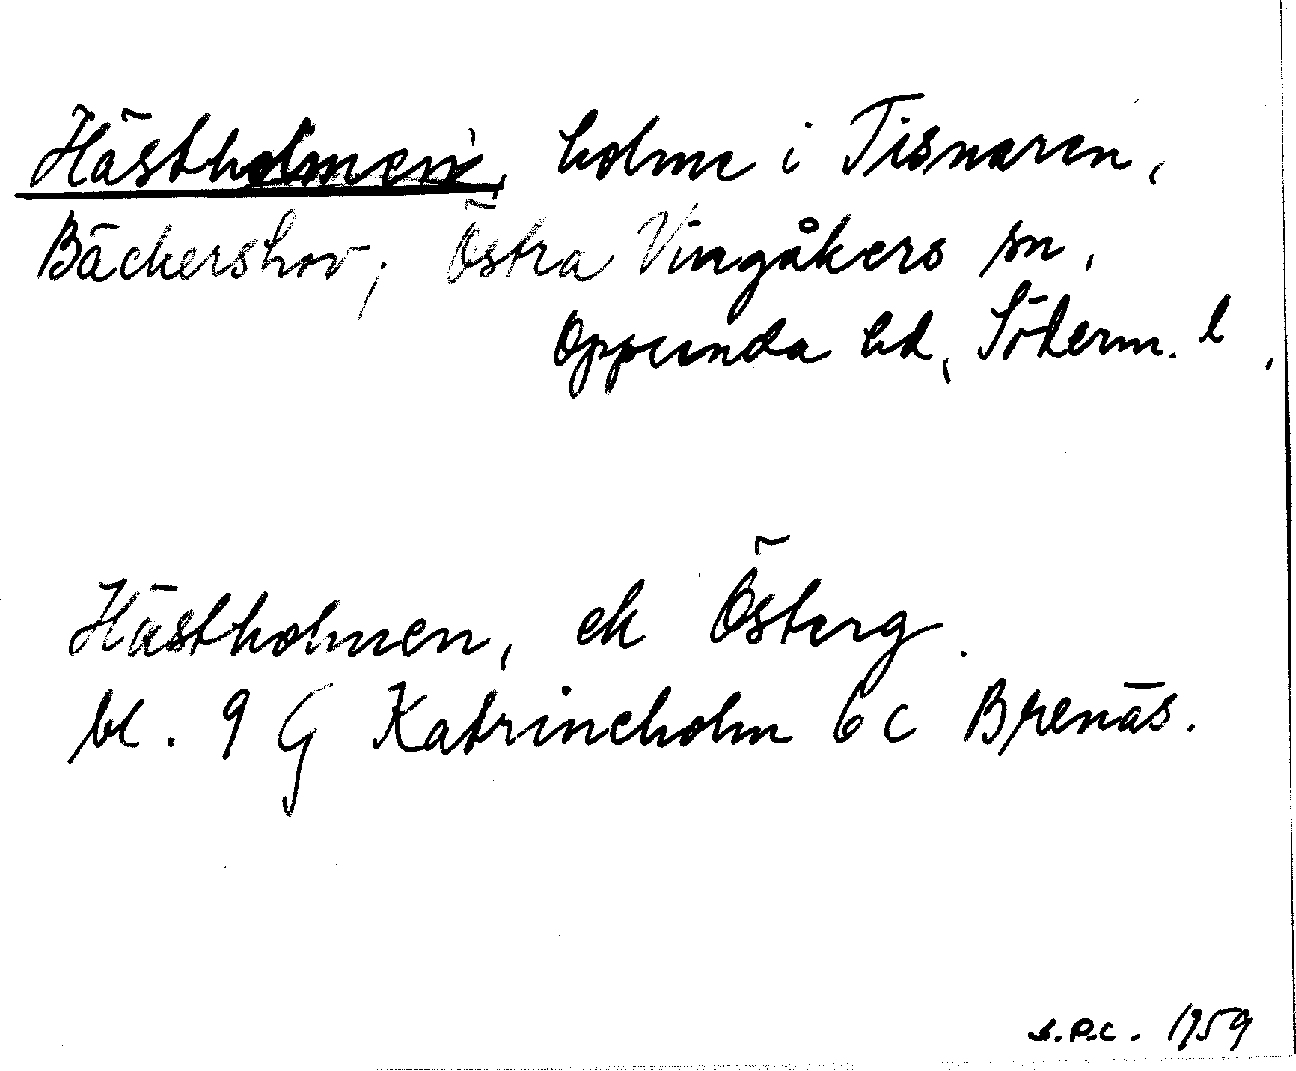 Hästholmen, holme i Tisnaren,
Bäckershov, Östra Vingåkers sn,
Oppunda hd, Söderm. l.
Hästholmen, ek Österg.
bl. 9 G Katrineholm 6 c Brenäs.
S.P.C. 1959